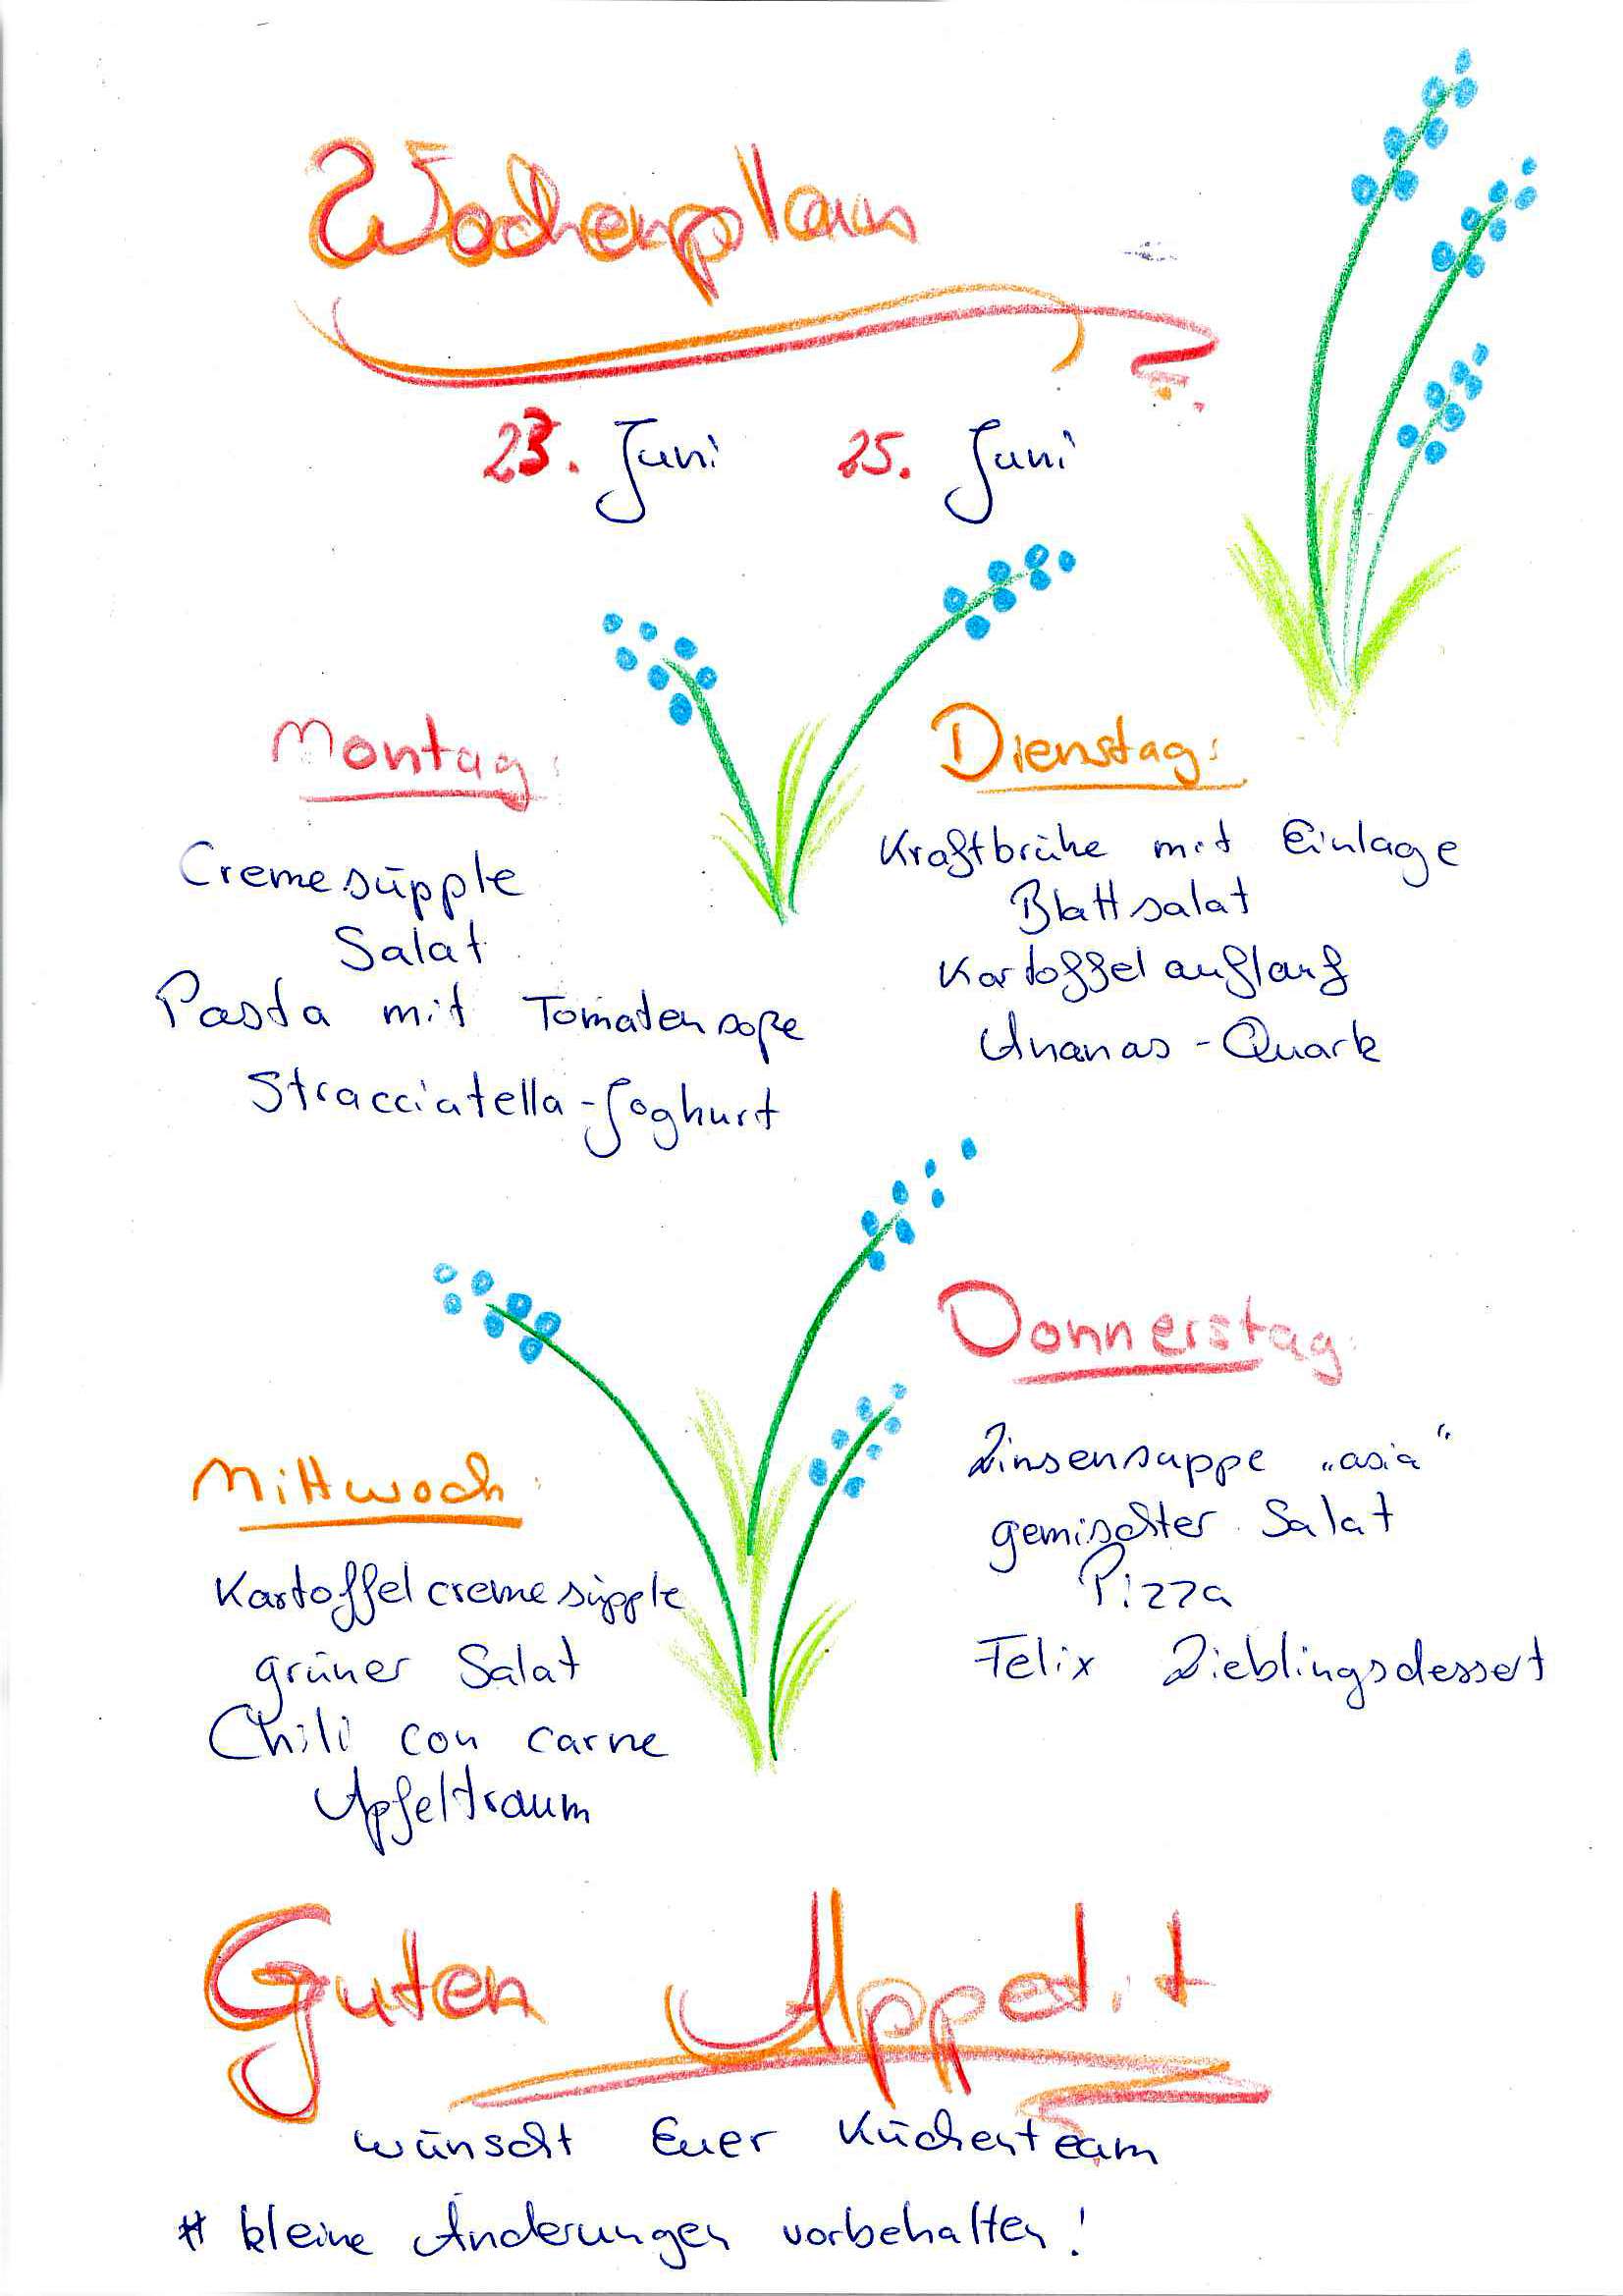 Wochenplan
23. Juni 25. Juni
Montag:
Cremesüpple
Salat
Pasta mit Tomatensoße
Stracciatella-Joghurt
Dienstag:
Kraftbrühe mit Einlage
Blattsalat
Kartoffelauflauf
Ananas-Quark
Mittwoch:
Kartoffelcremesüpple
grüner Salat
Chili con carne
Apfeltraum
Donnerstag:
Linsensuppe „asia“
gemischter Salat
Pizza
Felix Lieblingsdessert
Guten Appetit
wünscht Euer Küchenteam
# kleine Änderungen vorbehalten!